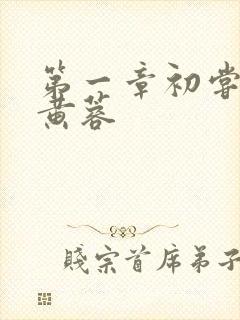 第一章初尝
黄蓉
贱宗首席弟子